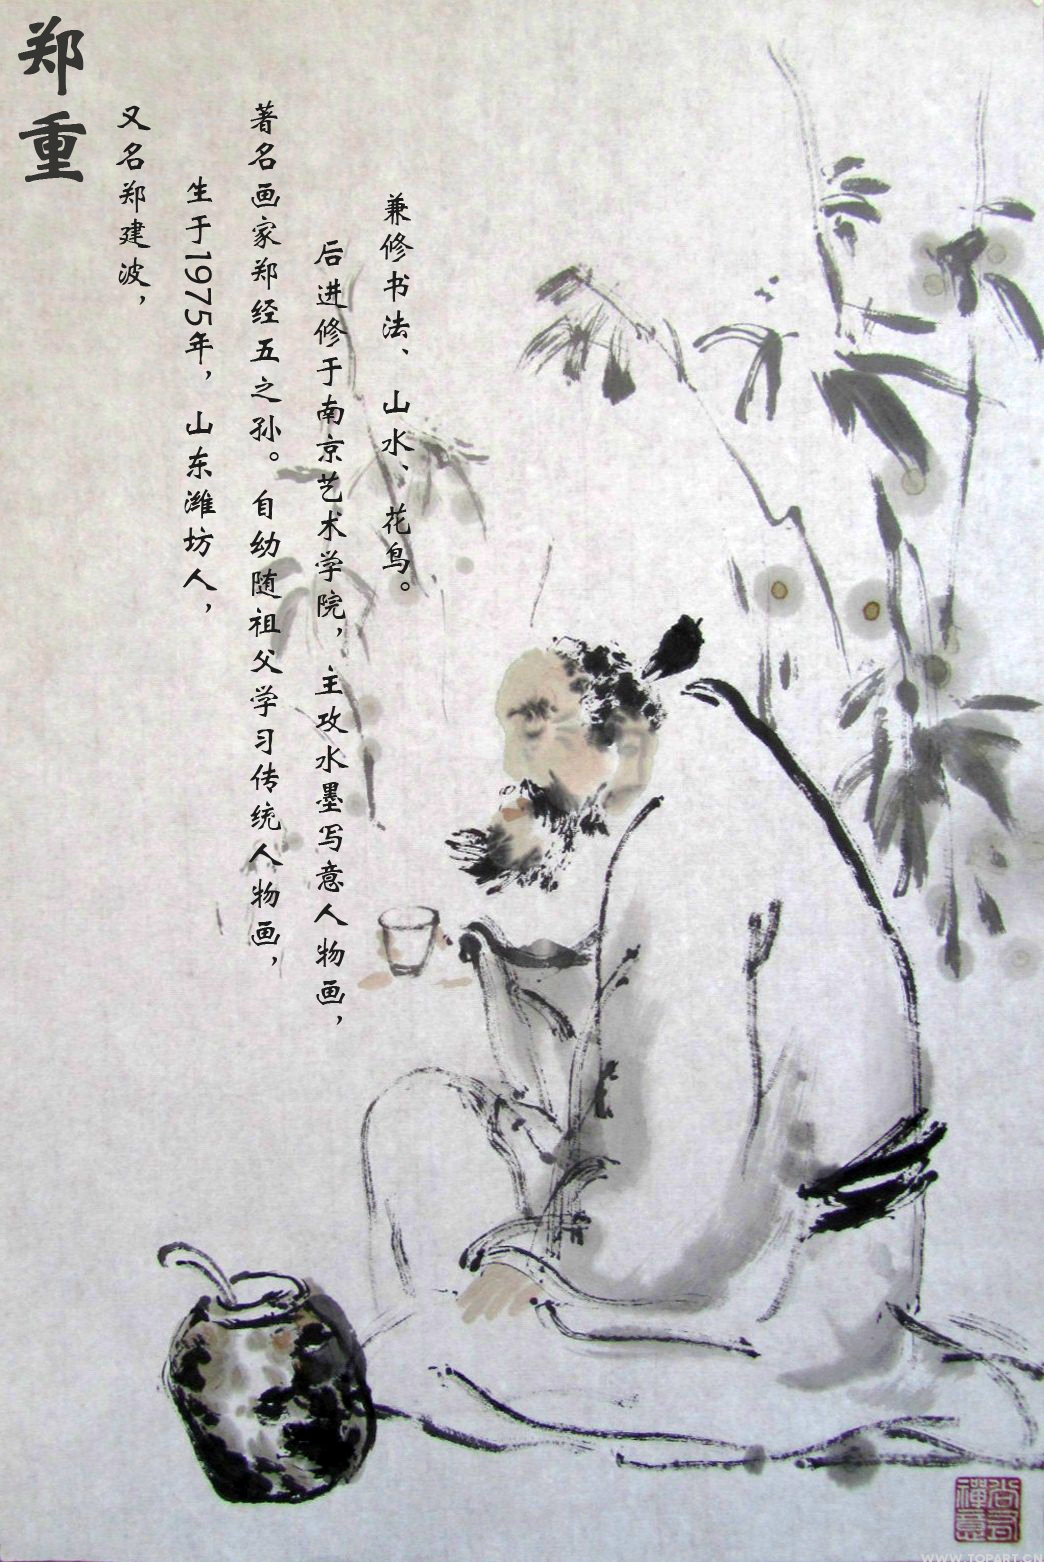 郑重
又名郑建波，
生于1975年，山东潍坊人，
著名画家郑经五之孙。自幼随祖父学习传统人物画，
后进修于南京艺术学院，主攻水墨写意人物画，
兼修书法、山水、花鸟。
禪意
WWW.TOPART.CN